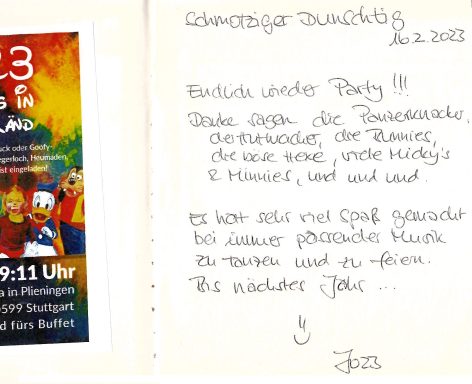 23
S IN
LÄND
uck oder Goofy-
egerloch, Heumaden,
ist eingeladen!
9:11 Uhr
a in Plieningen
0599 Stuttgart
d fürs Buffet
Schmotziger Dunschtig
16.2.2023
Endlich wieder Party !!!
Danke sagen die Panzerknacker,
der Hutmacher, die Bunnies,
die böse Hexe, viele Micky's
& Minnies, und und und.
Es hat sehr viel Spaß gemacht
bei immer passender Musik
zu tanzen und zu feiern.
Bis nächstes Jahr ...